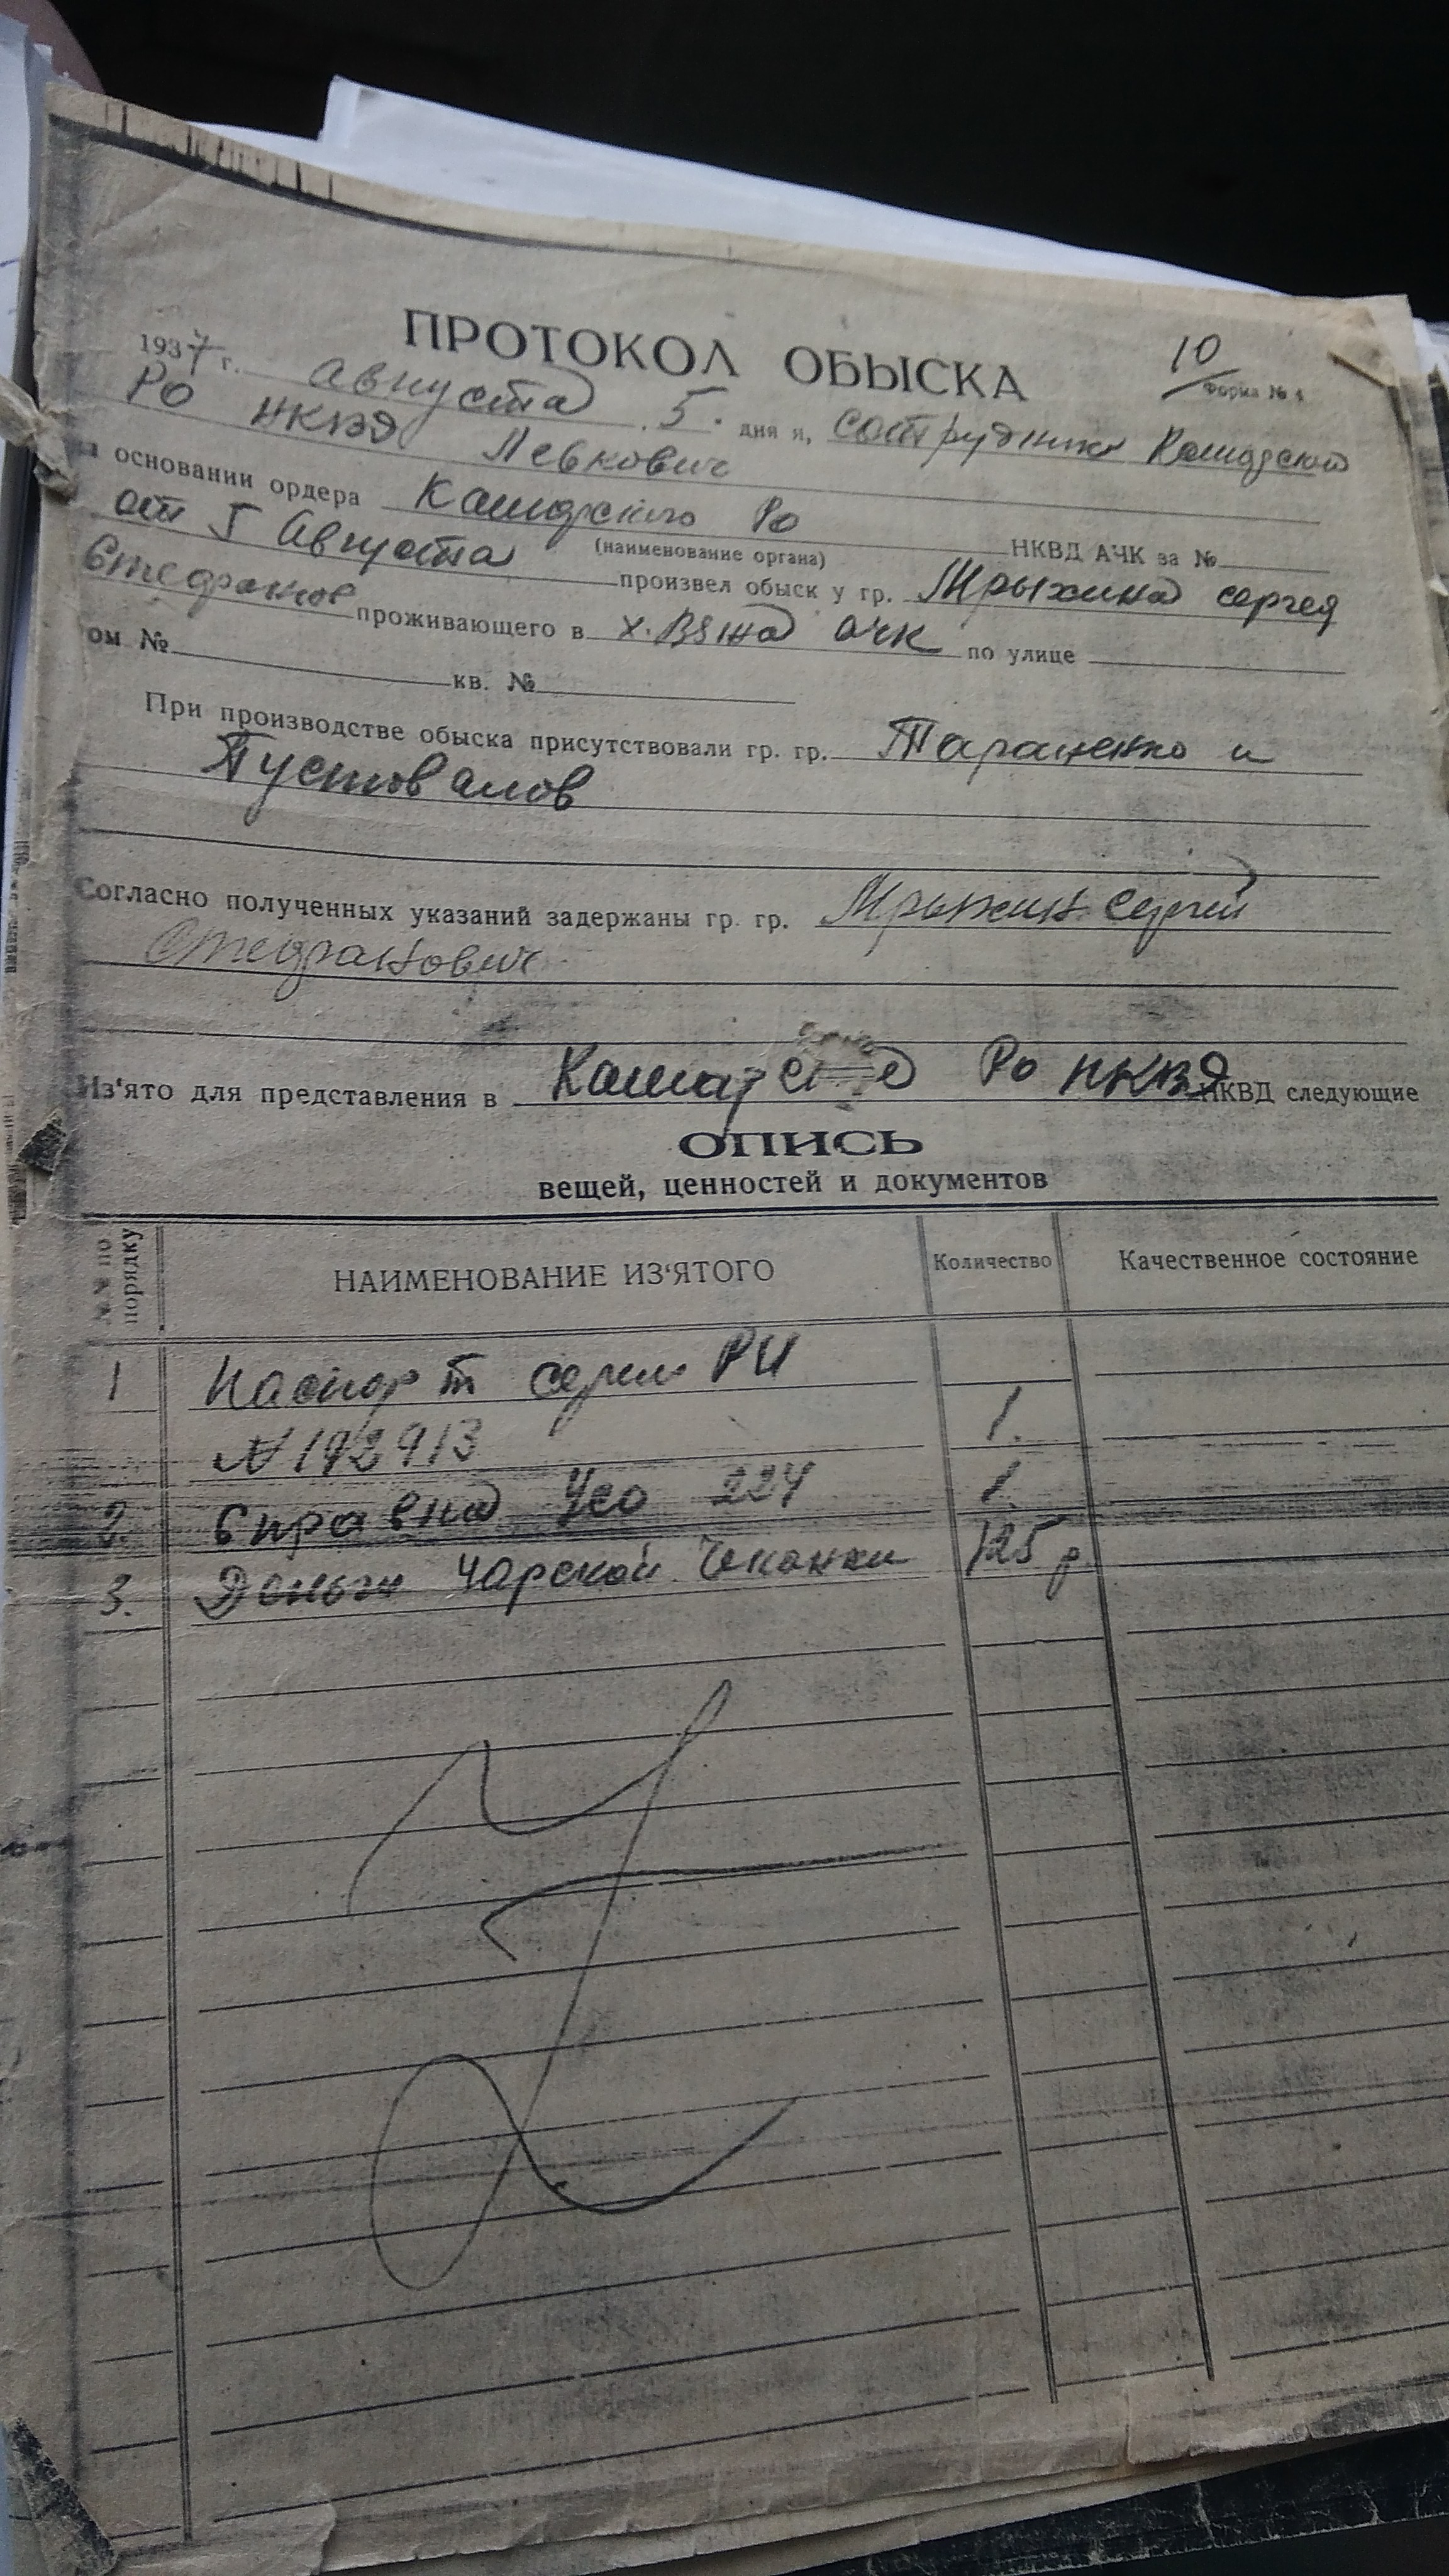 ПРОТОКОЛ ОБЫСКА
10
Форма № 4
1937 г. Августа 5. дня я, сотрудник Кашарского
РО НКВД Левкович
основании ордера Кашарского Ро НКВД АЧК за №
(наименование органа)
от 5 Августа произвел обыск у гр. Мрыхина Сергея
Стефанов проживающего в х. Вяжа АЧК по улице
ом № кв. №
При производстве обыска присутствовали гр. гр. Таращенко и
Пустовалов
Согласно полученных указаний задержаны гр. гр. Мрыхин Сергей
Стефанович
Из'ято для представления в Кашарское Ро НКВД НКВД следующие
ОПИСЬ
вещей, ценностей и документов
№№ по порядку НАИМЕНОВАНИЕ ИЗ'ЯТОГО Количество Качественное состояние
1 Паспорт серии РИ
N 192913 1.
2. Справка 224 1.
3. Деньги Царской Чеканки 125 р.